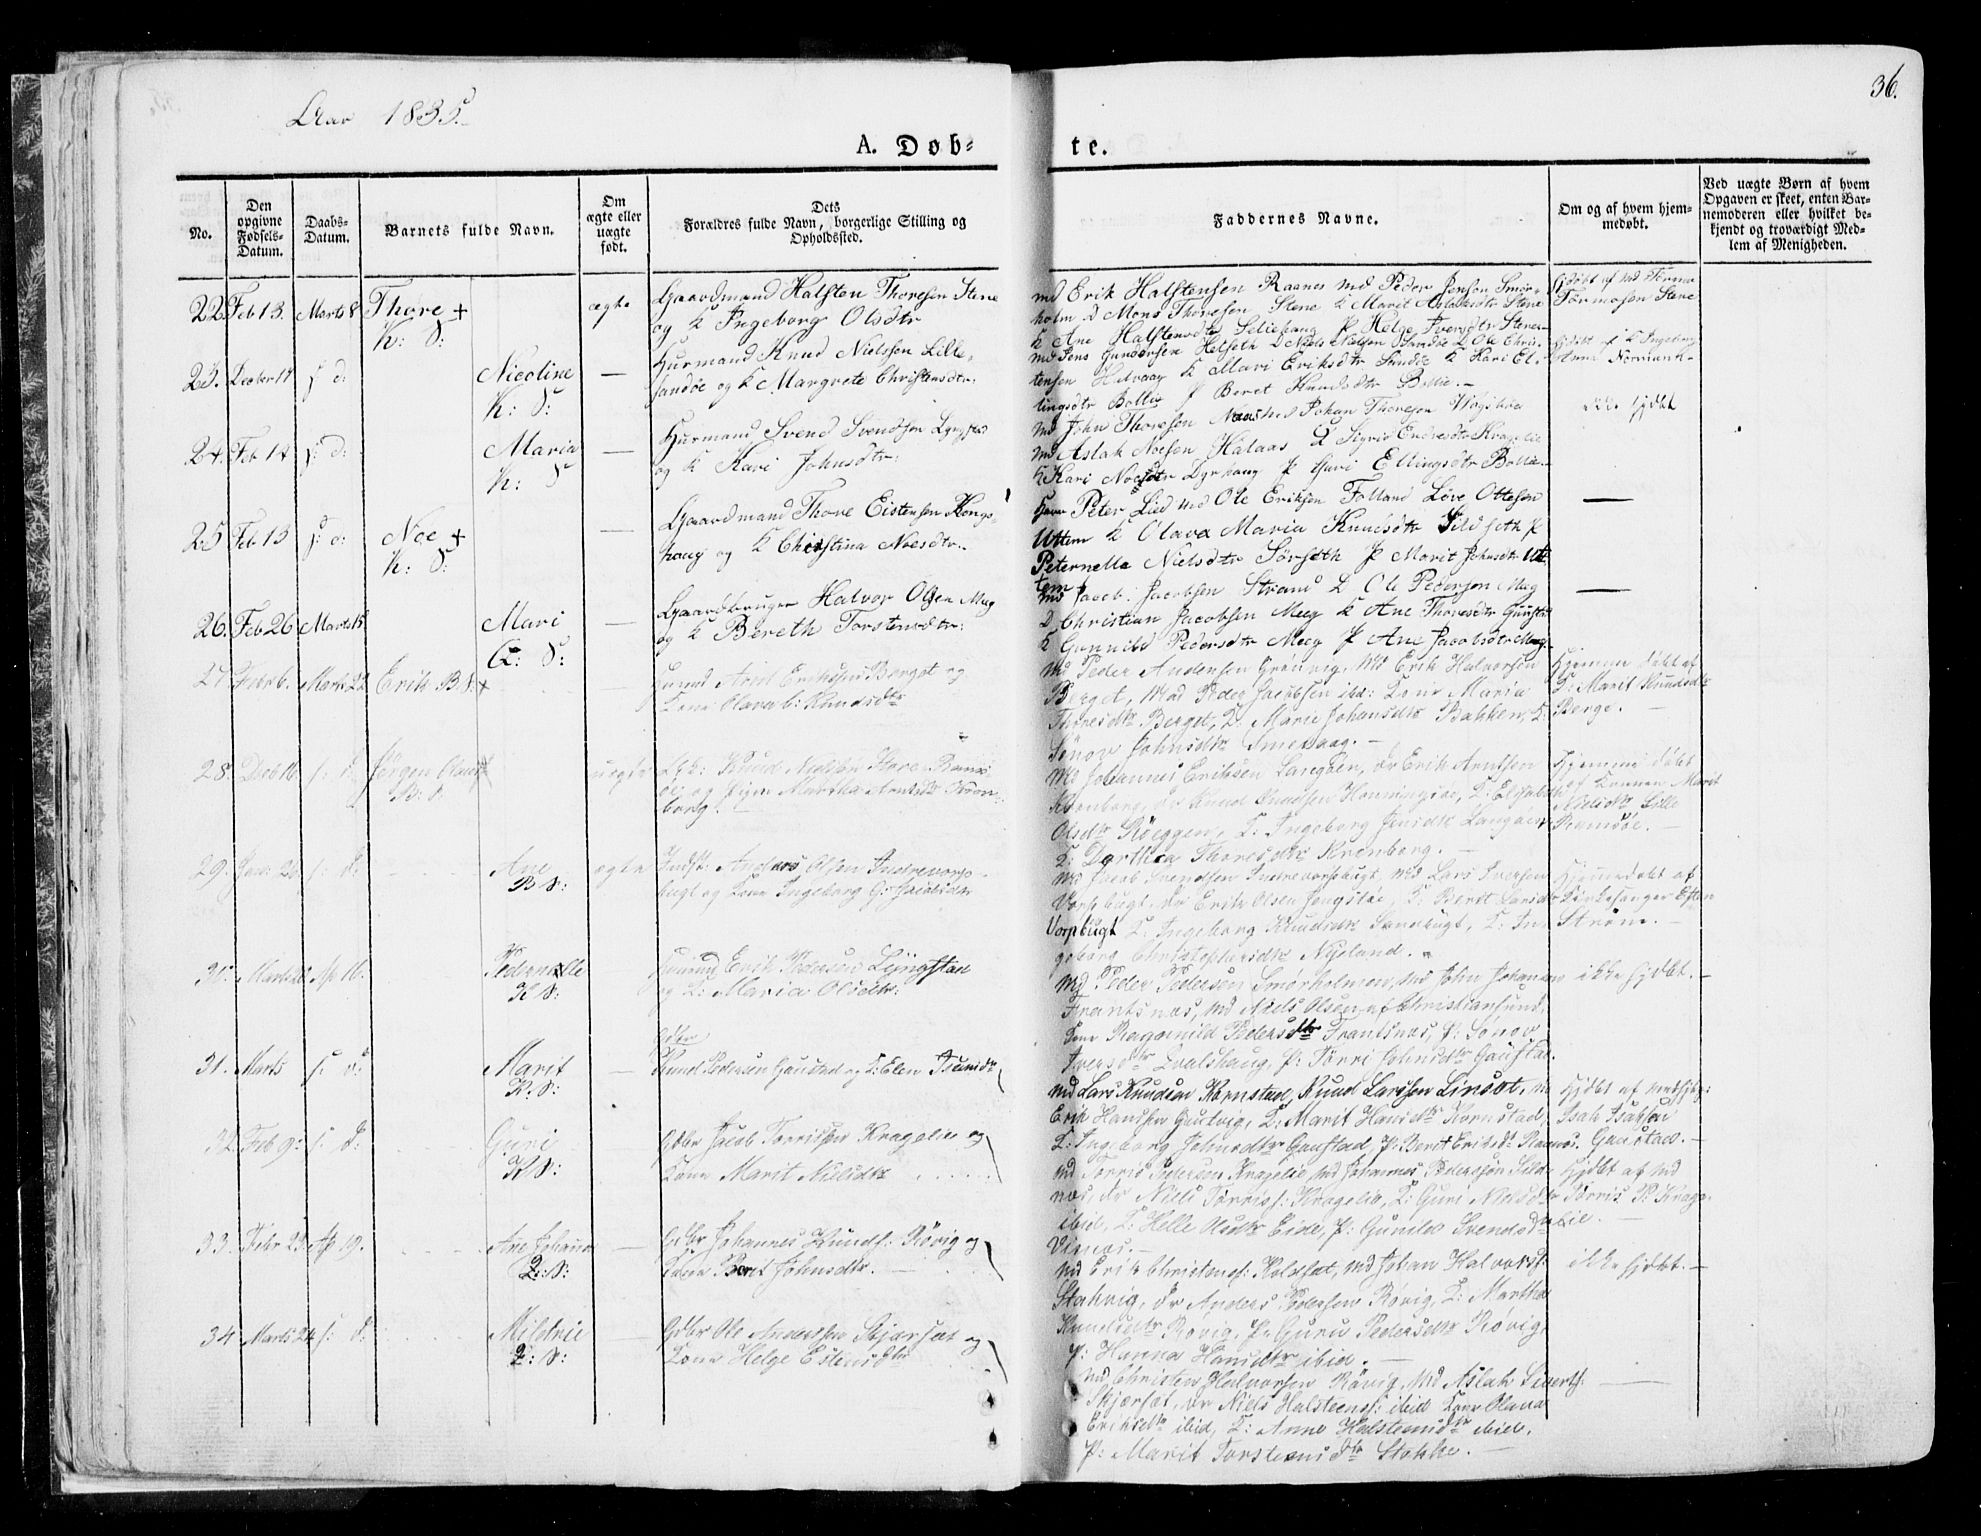 36.
Aar 1835.
A. Døb-
te.
No.
Den opgivne Fødsels-Datum.
Daabs-Datum.
Barnets fulde Navn.
Om ægte eller uægte født.
Dets Forældres fulde Navn, borgerlige Stilling og Opholdssted.
Faddernes Navne.
Om og af hvem hjem-medøbt.
Ved uægte Børn af hvem Opgaven er skeet, enten Bar-nemoderen eller hvilket be-kjendt og troværdigt Med-lem af Menigheden.
22 Feb 13. Marts 8 Thore + ægte Gaardmand Halsten Thoresen Stene
K: S: og K Ingeborg Olsdtr
md Erik Halstensen Raanes md Peder Jensen Smør-
holm D Mons Thoresen Stene K Marit Aslaksdtr Stene
K Ane Halstensdtr Seliehaug P Helge Iversdtr Stene
Hjdøbt af md Tormo
Tormosen Stene
23. Decbr 14 s: d: Nicoline — Huusmand Knud Nielssen Lille-
K: S: sandøe og K Margrete Christensdtr.
md Jens Gundersen Helseth D Niels Nielsen Sandøe D Ole Chris-
tensen Halvaag K Mari Eriksdtr Sandøe K Kari El-
lingsdtr Bollie P Beret Knudsdtr Bollie.—
Hjdøbt af K Ingeborg
24. Feb 14 s: d: Maria — Huusmand Svend Svendsen Lyngstad
K: S og K Kari Johnsdtr:
md John Thoresen Naas md Johan Thoresen Vogsbøe
md Aslak Noesen Halaas K Sigrid Endresdtr Kragelie
K Kari Noesdtr Dyrhaug P Guri Ellingsdtr Bollie.
ikke hjdøbt
25 Feb 13 s: d: Noe + — Gaardmand Thore Eistensen Kongs-
K: S: haug og K Christina Noesdtr.
Herr Peter Lied md Ole Eriksen Folland Løve Ottesen
Uttem K Olava Maria Knudsdtr Sildseth P
Peternella Nielsdtr Sørseth P Marit Johnsdtr Ut-
tem
—
26. Feb 26 Marts 15 Mari — Gaardbruger Halvor Olsen Meeg
S: og K Bereth Torstensdtr:
md Jacob Jacobsen Strand D Ole Pedersen Meeg
D Christian Jacobsen Meeg K Ane Thoresdtr Guustad
K Gunnild Pedersdtr Meeg P Ane Jacobsdtr Meeg.
—
27. Marts 22 Erik B S + Arnt Eriksen Berget og
Kone Olava Knudsdtr
Md Peder Andersen Grønvig, Md Erik Halvorsen
Berget, Md Peder Jacobsen ibid: Kone Maria
Thoresdtr Berget, K: Marie Johansdtr Bakken, K:
Sønov Johnsdtr Smevaag.—
Hjemme døbt af
K: Marit Knudsdtr
Berge.—
28. Decb 16. s: d: Jørgen Olaus uægte Knud Nielsen Store Rams-
B: S. øe og Pigen Martha Arntsdtr Kron-
borg.
Md Johannes Eriksen Langøen, Dr Erik Arntsen
Kronborg, Dr Knud Knudsen Honningsøe, K: Elisabeth
Olsdtr Skeggen, K: Ingeborg Jensdtr Langøen
K: Dorthea Thoresdtr Kronborg.—
Hjemme døbt
af Konen Marit
Nielsdtr Lille
Ramsøe.—
29. Jan: 26. s: d: Ane ægte Anders Olsen Indrevorp-
B S: bugt og Kone Ingeborg G: Jacobsdtr
Md Jacob Svendsen Indrevorpebugt, Md Lars Iversen
Vorpbugt, Dr Erik Olsen K: Berit Larsdtr
Vorpbugt K: Ingeborg Knudsdtr Sandbugt, K: In-
geborg Christophersdtr Nyeland.
Hjemmedøbt af
Kirkesanger Esten
Strøm.—
30. Marts Ap 16. Pedernelle Huusmd Erik Pedersen Lyngstad
K S: og K: Maria Olsdtr:
Md Peder Pedersen Smørholmen, Md John Johansen
Frantsnæs, Md Niels Olsen af Christiansund,
Kone Ragnnild Pedersdtr Frantsnæs, P: Sønov
Iversdtr Kvalshaug, P: Torri Johnsdtr Gaustad.
ikke hjdøbt.—
31. Marts s: d: Marit — Gdbr
K. S: Knud Pedersen Gaustad og K: Elen
Md Lars Knudsen Kornstad, Knud Larssen Linset,
Erik Hansen Gutvig, K: Marit Hansdtr Kornstad,
K: Ingeborg Johnsdtr Gaustad, P: Berit Eriksdt Raanes.
Hjdøbt af
Isak Isaksen
Gaustad.—
32. Feb 9. s: d: Guri — Gdbr Jacob Torrissen Kragelie og
K S: Kone Marit Nilsdtr
Md Torris Pedersen Kragelie, Md Johannes Pedersen Sild-
næs, Dr Niels Torriss: Kragelie, K: Guri Nielsdtr
ibid, K: Helle Olsdtr Eide, P: Gunild Svendsdtr
Visnæs.—
Hjdøbt af Md
Torris P: Krage-
lie.—
33. Febr 23. Ap 19. Ane Johanna — Gdbr Johannes Knuds: Røvig og
K: S: Kone Beret Johnsdtr.
Md Erik Christens: Holdsæt, Md Johan Halvors:
Stakvig, Dr Anders Pedersen Røvig, K: Martha
Knudsdtr Røvig, P: Guru Pedersdtr Røvig,
P: Hanna Hansdtr ibid.—
ikke hjdøbt.—
34 Marts 24 s: d: Mildrie — Gdbr Ole Anderssen Skjærsæt og
K: S: Kone Helge Estensdtr
Md Christen Halvorsen Røvig, Md Aslak Siverts:
Skjærsæt, Dr Niels Halsteens: ibid Kone Olava
Eriksdtr ibid, K: Anne Halsteensdtr ibid.
P: Marit Torsteensdtr Stokke.—
—